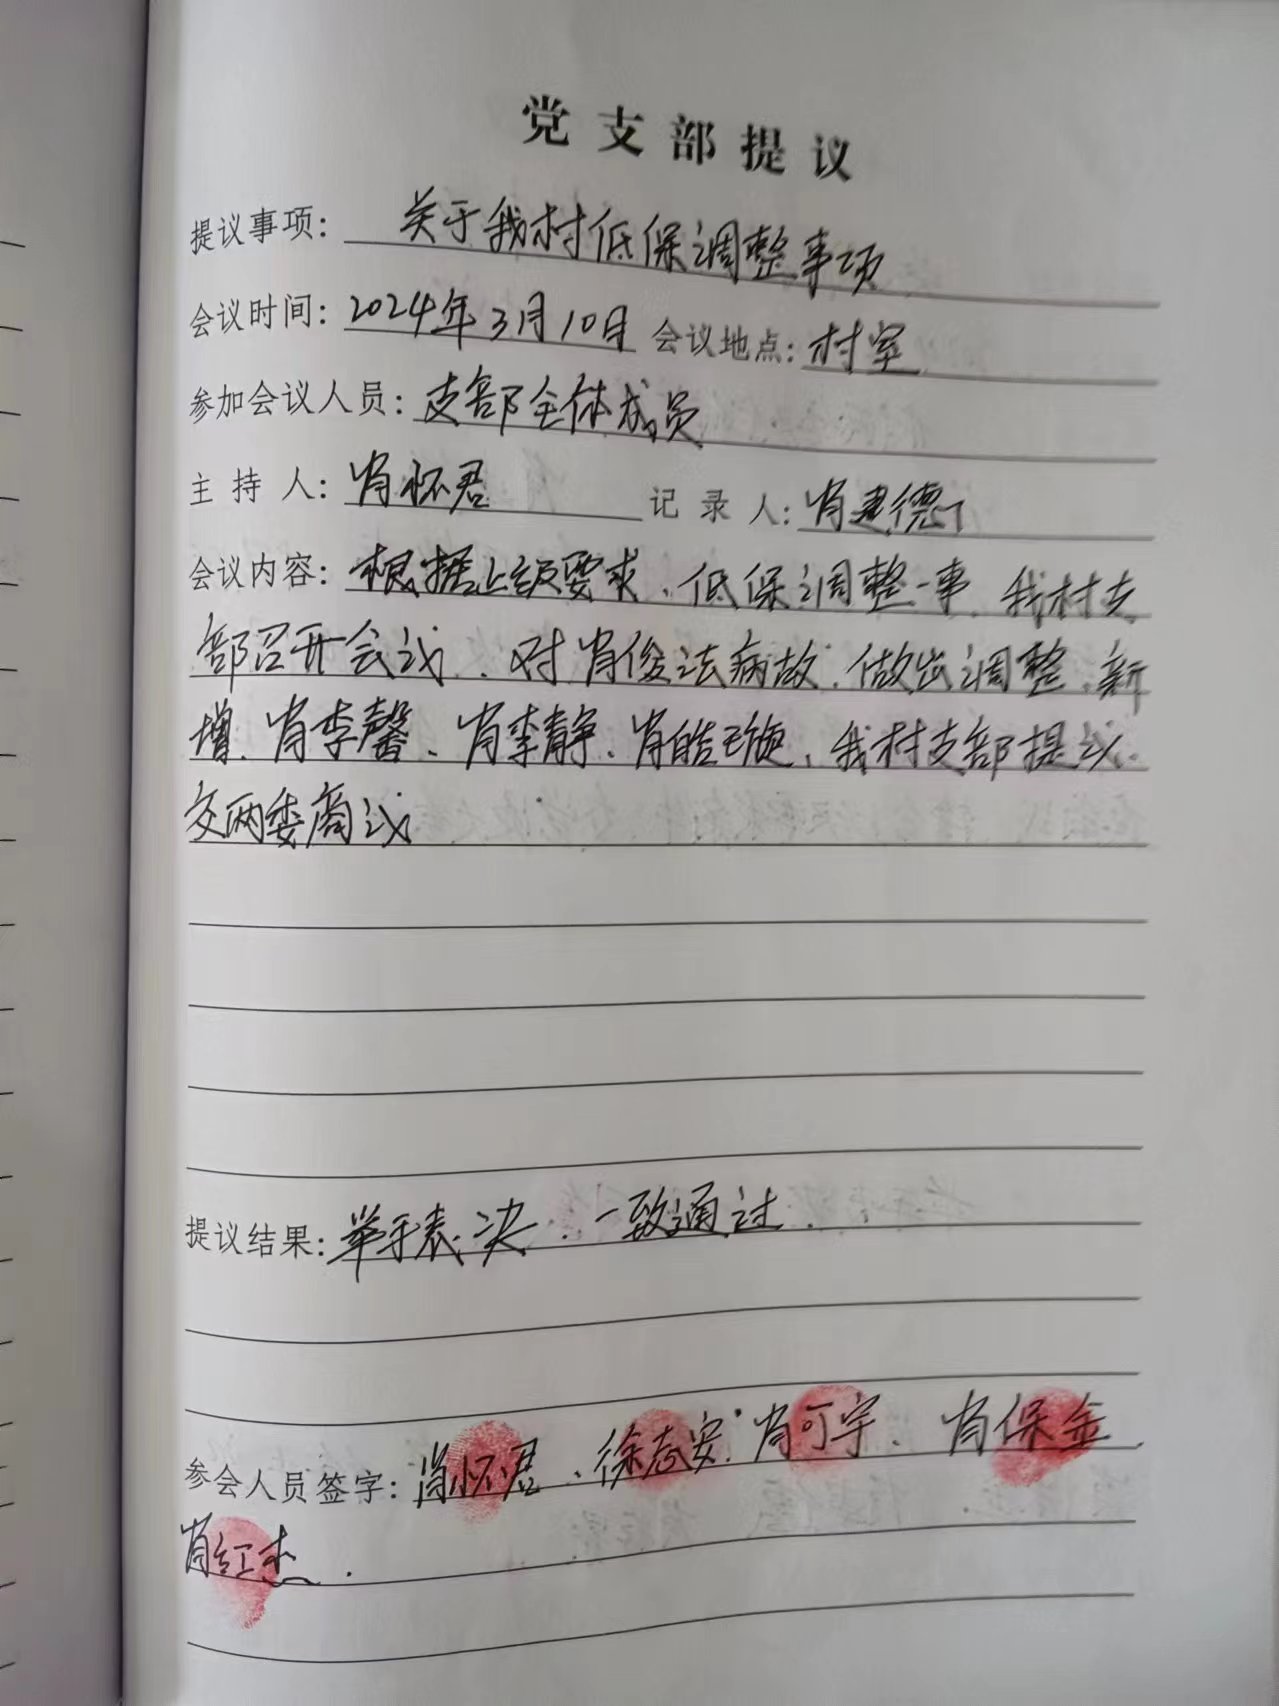 党支部提议
提议事项: 关于我村低保调整事项
会议时间: 2024年3月10日 会议地点: 村室
参加会议人员: 支部全体成员
主持人: 肖怀君 记录人: 肖建德
会议内容: 根据上级要求、低保调整一事、我村支
部召开会议、对肖俊法病故、做出调整、新
增、肖李馨、肖李静、肖皓旋、我村支部提议
交两委商议
提议结果: 举手表决、一致通过.
参会人员签字: 肖怀君、徐志安. 肖可宇、肖保金
肖红杰.